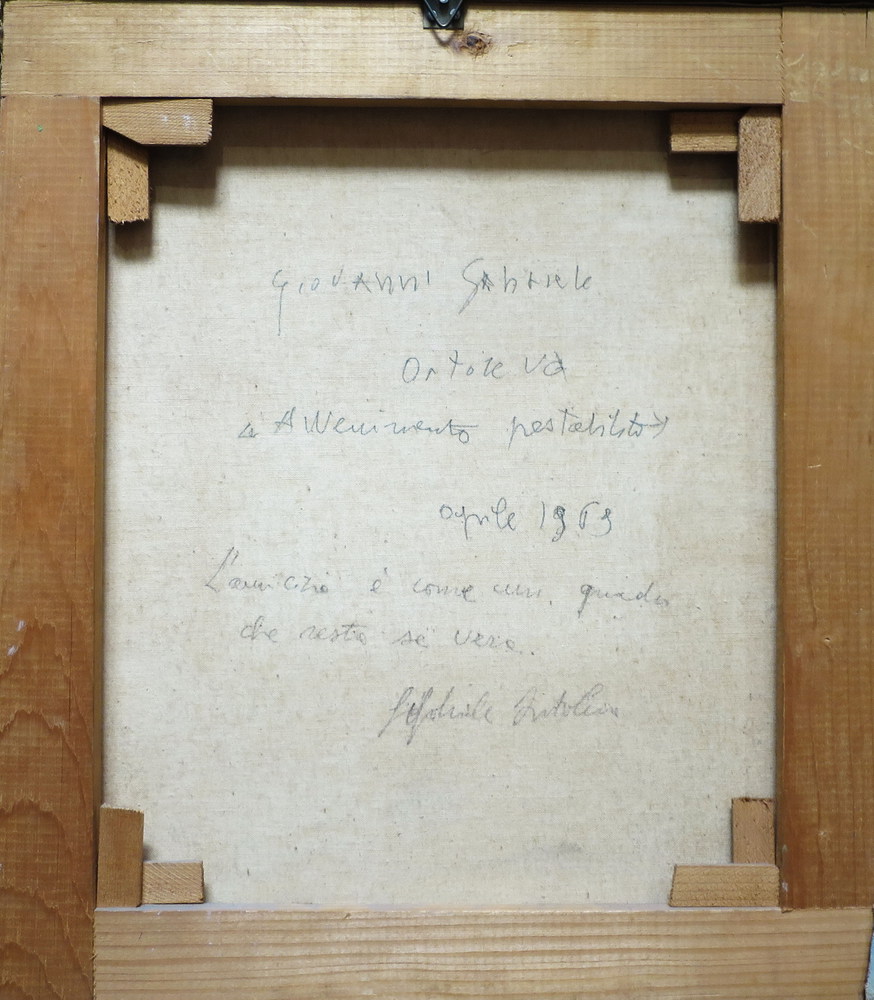 Giovanni Gabriele
Ortoleva
"Avvenimento prestabilito"
aprile 1969
L'amicizia è come un quadro
che resta se vero.
G Gabriele Ortoleva